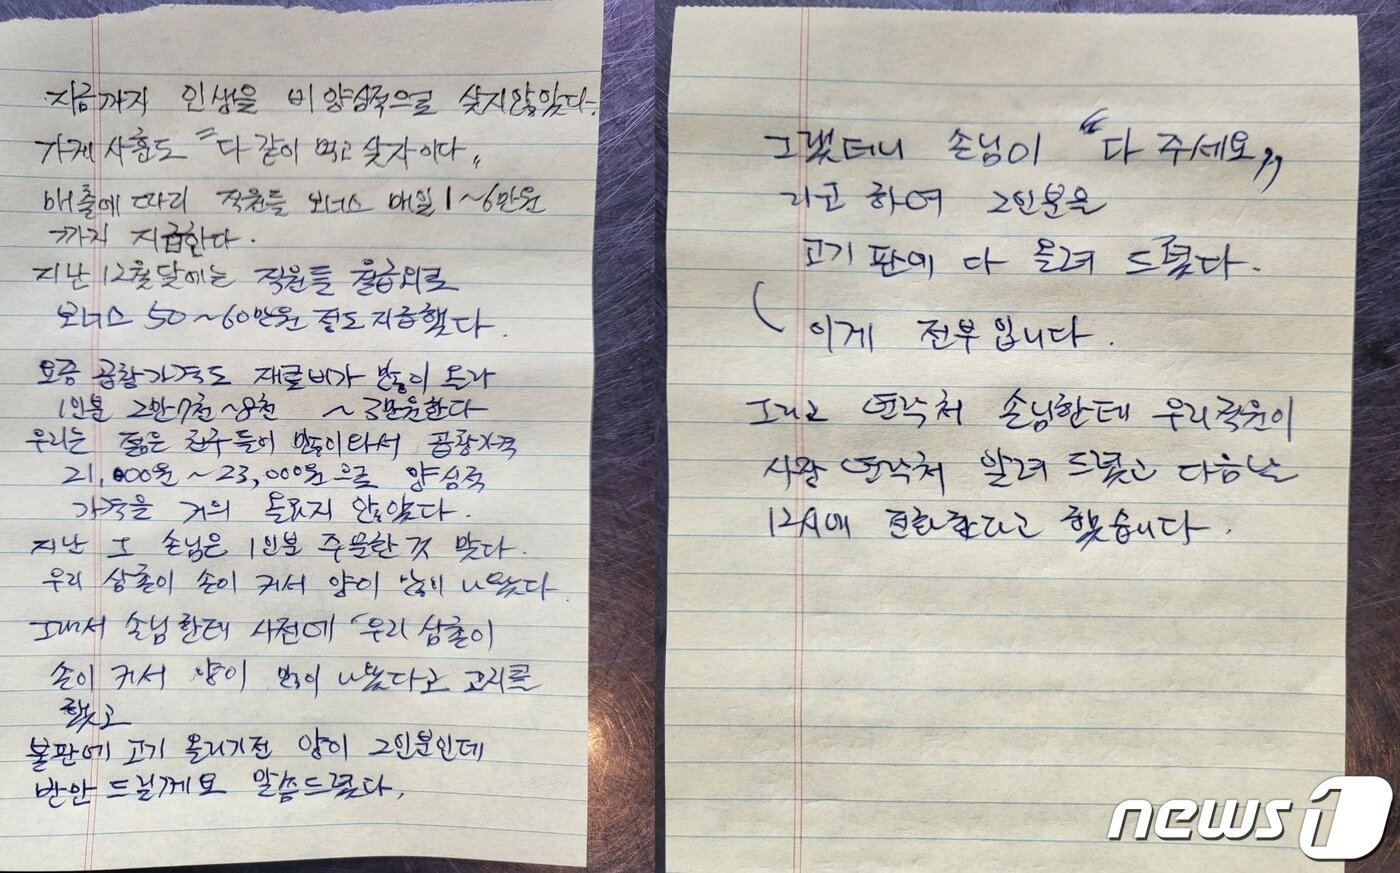 지금까지 인생을 비양심적으로 살지않았다.
가게 사훈도 "다 같이 먹고 살자이다"
매출에 따라 직원들 보너스 매일 1~6만원
까지 지급한다.
지난 12월달에는 직원들 월급외로
보너스 50~60만원 정도 지급했다.
요즘 곱창가격도 재료비가 많이 올라
1인분 2만7천~8천 ~3만원한다
우리는 젊은 친구들이 많이와서 곱창가격
21,000원~23,000원으로 양심적
가격을 거의 올리지 않았다.
지난 그 손님은 1인분 주문한 것 맞다.
우리 삼촌이 손이 커서 양이 많이 나왔다
그래서 손님한테 사전에 "우리 삼촌이
손이 커서 양이 많이 나왔다고 고지를
했고
불판에 고기 올리기전 양이 2인분인데
반만 드릴께요 말씀드렸다.
그랬더니 손님이 "다 주세요"
라고 하여 2인분을
고기 판에 다 올려 드렸다.
이게 전부입니다.
그리고 연락처 손님한테 우리직원이
사장 연락처 알려 드렸고 다음날
12시에 전화한다고 했습니다.
news1